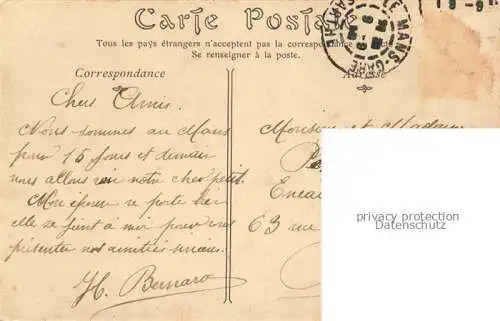 Carte Postale
Tous les pays étrangers n'acceptent pas la correspondance
Se renseigner à la poste.
Correspondance
Adresse
LE MANS-GARE
SARTHE
Chers Amis.
Nous sommes au Mans
pour 15 jours et demain
nous allons voir notre cher petit.
Mon épouse se porte bien
elle se joint à moi pour vous
présenter nos amitiés sincères.
H. Bernard
Monsieur et Madame
63 rue
privacy protection
Datenschutz